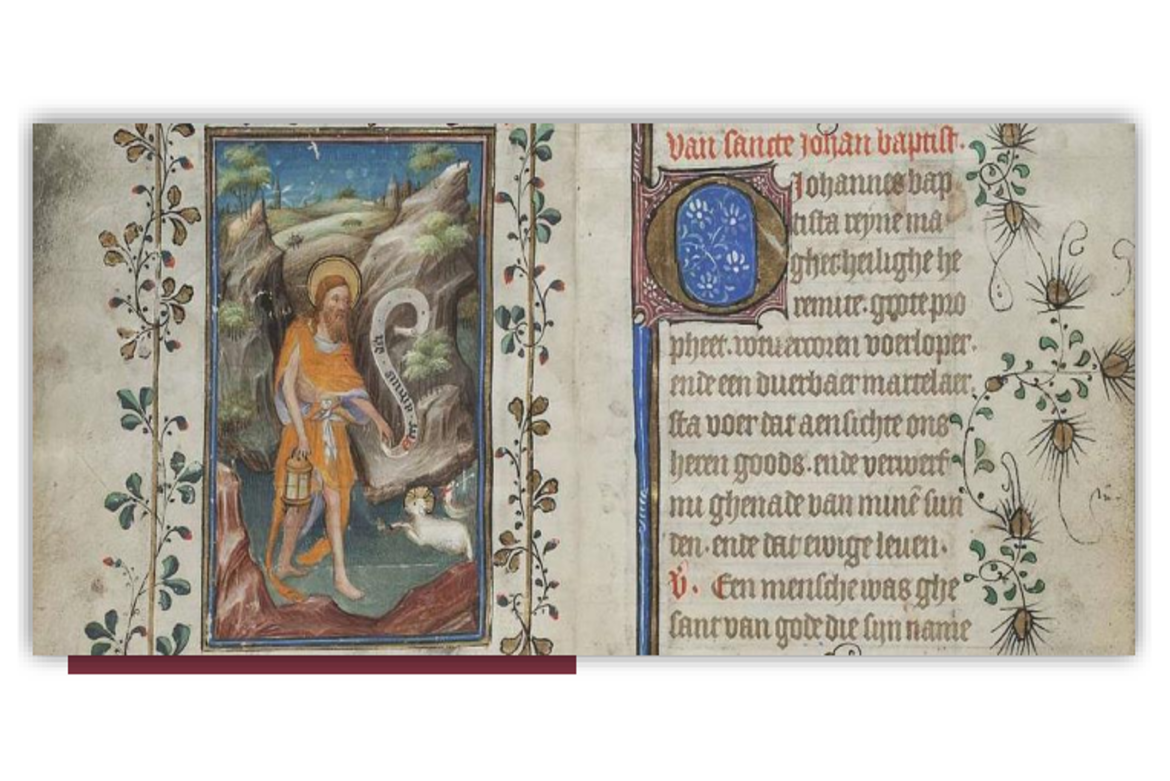 van sancte Johan baptist.
O Johannes bap
tista reyne ma
ghet heilighe he
remite. grote pro
pheet. wtuercoren voerloper.
ende een duerbaer martelaer.
sta voer dat aensichte ons
heren goods. ende verwerf
mi ghenade van minē sun
den. ende dat ewige leuen.
V. Een mensche was ghe
sant van gode die sijn name